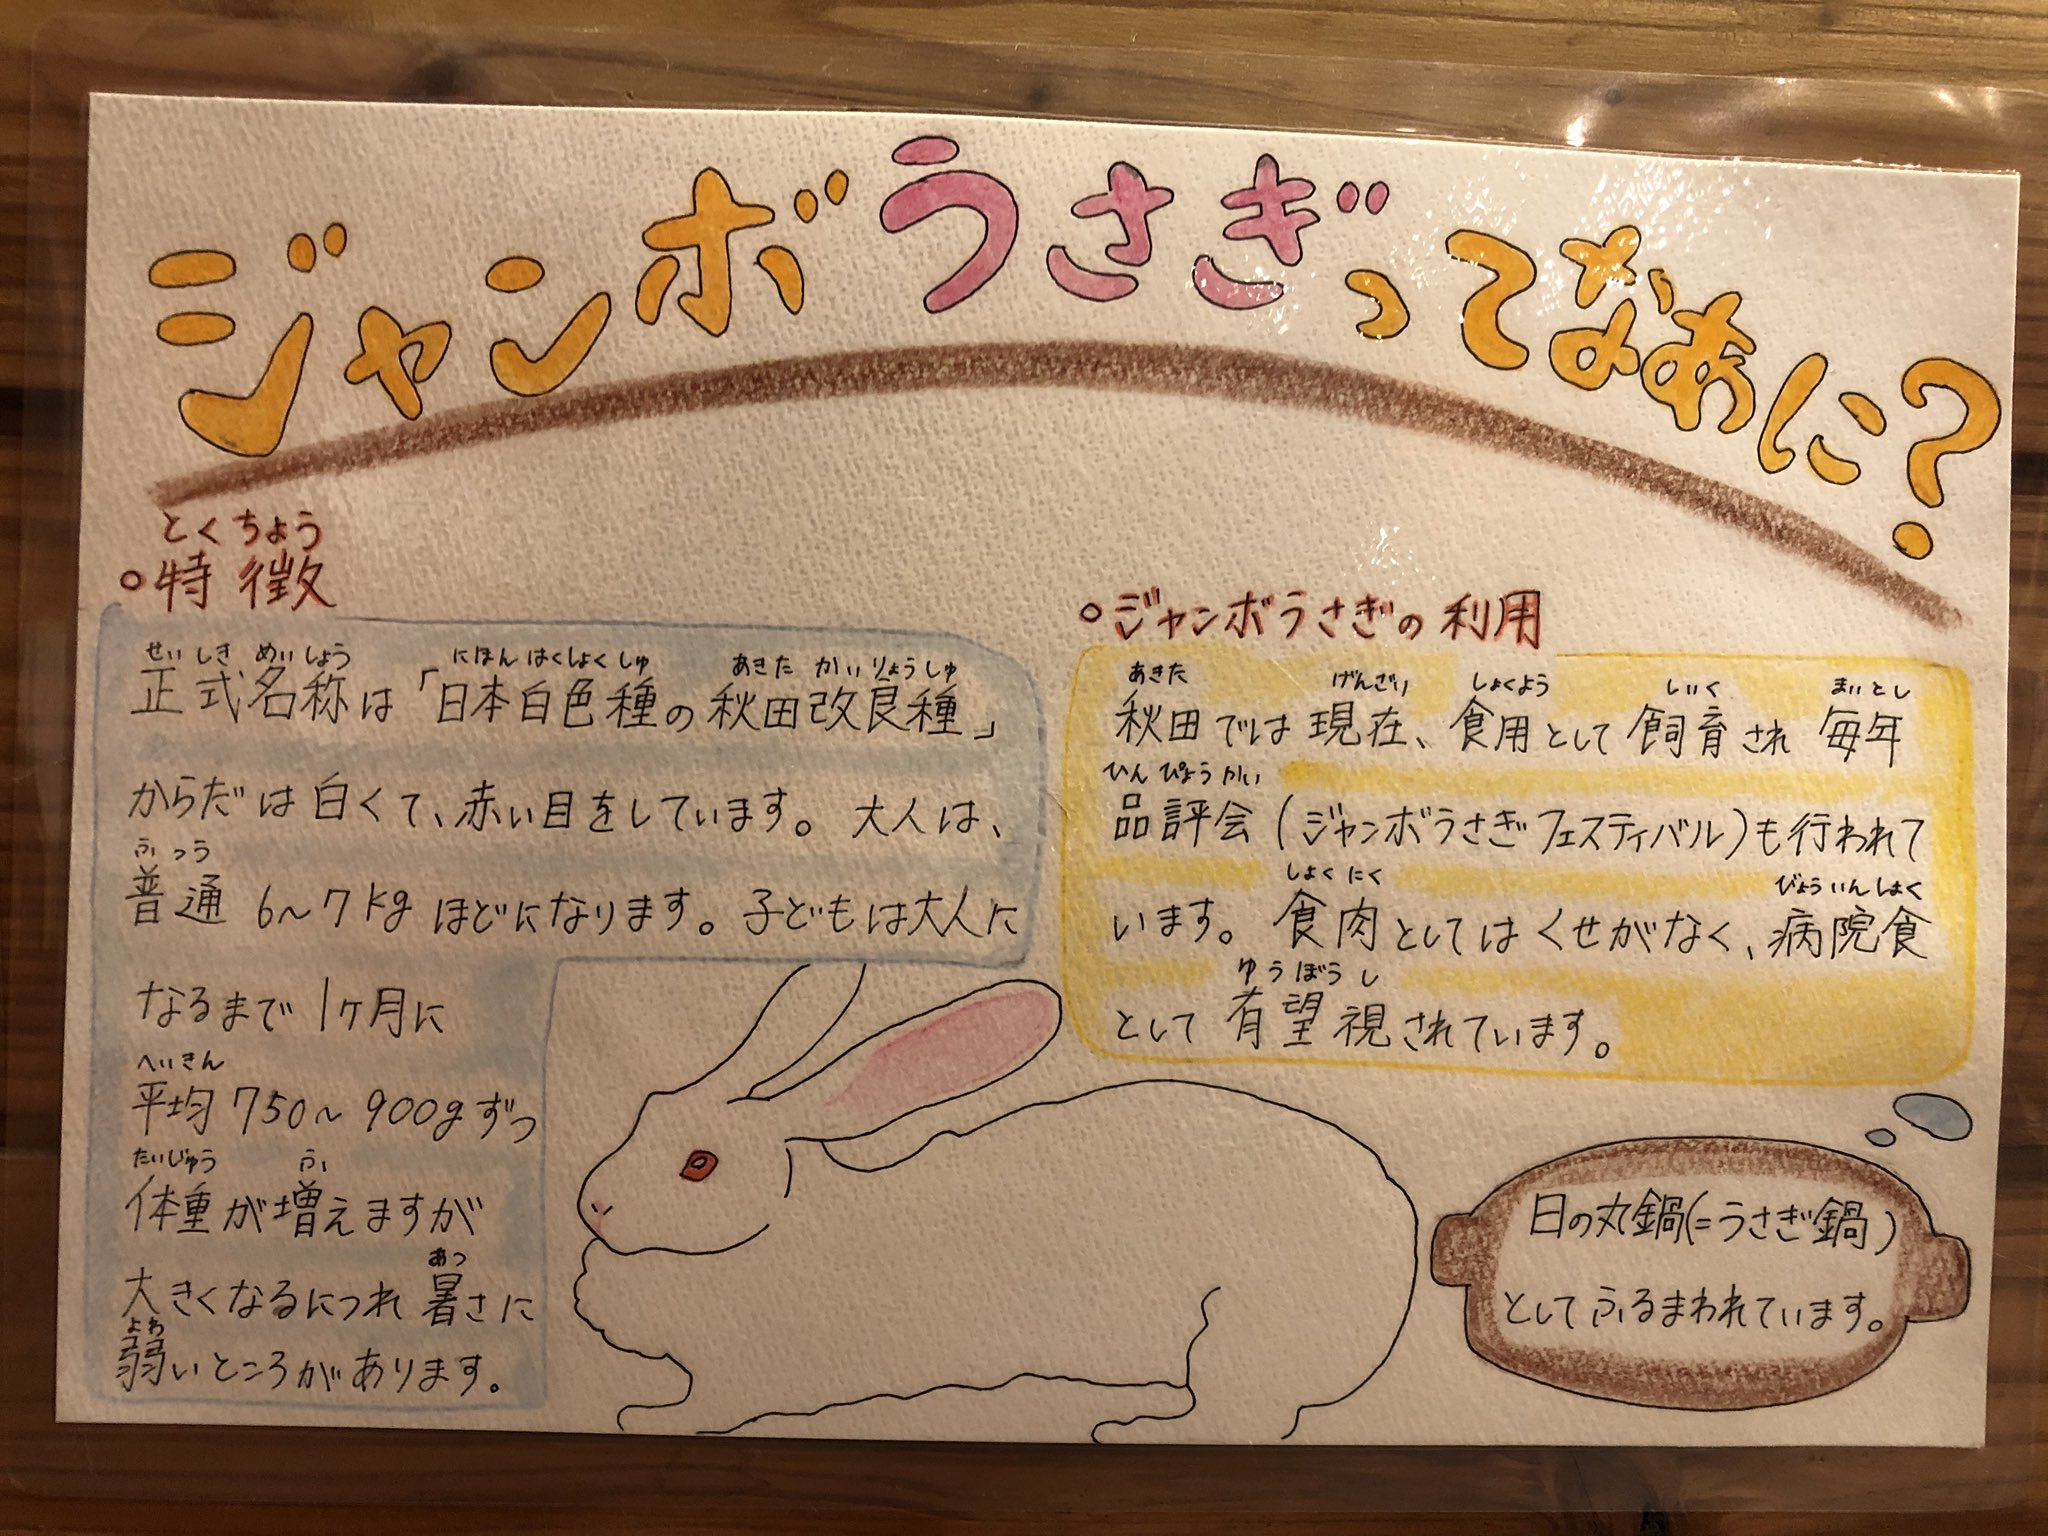 ジャンボうさぎってなぁに?
とくちょう
○特徴
せいしき めいしょう にほん はくしょく しゅ あきた かいりょうしゅ
正式名称は「日本白色種の秋田改良種」
からだは白くて、赤い目をしています。大人は、
ふつう
普通 6〜7kgほどになります。子どもは大人に
なるまで1ヶ月に
へいきん
平均750〜900gずつ
たいじゅう ふ
体重が増えますが
あつ
大きくなるにつれ暑さに
よわ
弱いところがあります。
○ジャンボうさぎの利用
あきた げんざい しょくよう しいく まいとし
秋田では現在、食用として飼育され毎年
ひんぴょうかい
品評会(ジャンボうさぎフェスティバル)も行われて
しょくにく びょういんしょく
います。食肉としてはくせがなく、病院食
ゆうぼうし
として有望視されています。
日の丸鍋(=うさぎ鍋)
としてふるまわれています。